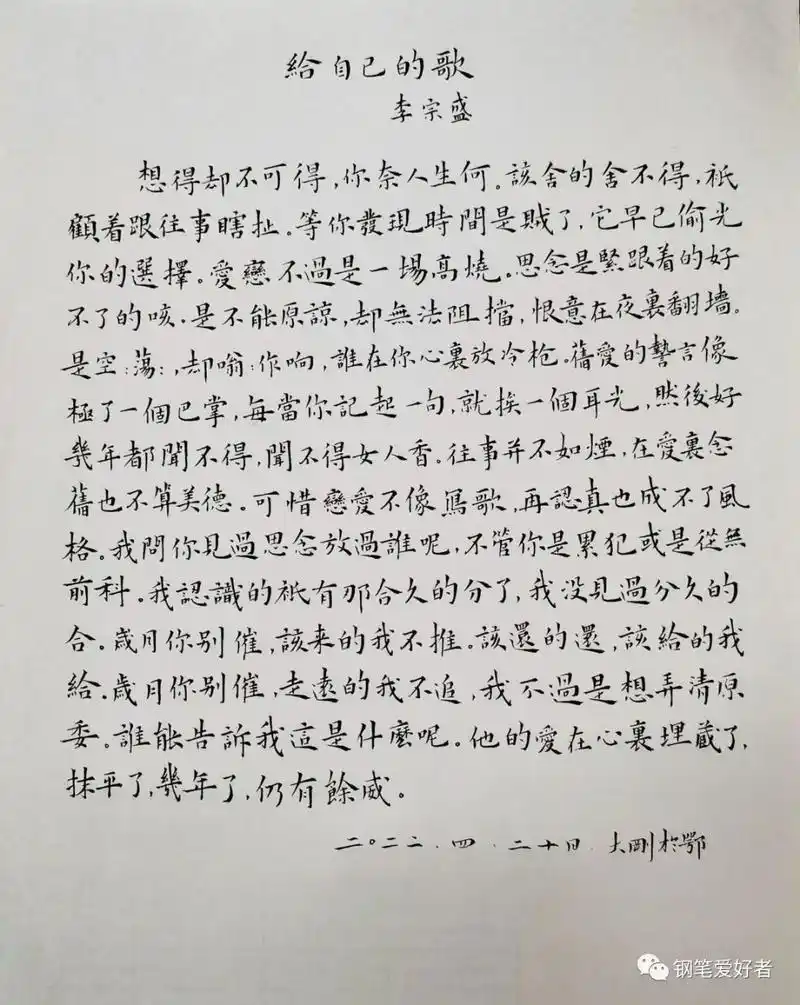 給自己的歌
李宗盛
想得却不可得，你奈人生何。該舍的舍不得，祇
顧着跟往事瞎扯。等你發現時間是賊了，它早已偷光
你的選擇。愛戀不過是一場高燒。思念是緊跟着的好
不了的咳。是不能原諒，却無法阻擋，恨意在夜裏翻墻。
是空:蕩:，却嗡:作响，誰在你心裏放冷枪。舊愛的誓言像
極了一個巴掌，每當你記起一句，就挨一個耳光，然後好
幾年都聞不得，聞不得女人香。往事并不如煙，在愛裏念
舊也不算美德。可惜戀愛不像寫歌，再認真也成不了風
格。我問你見過思念放過誰呢，不管你是累犯或是從無
前科。我認識的祇有那合久的分了，我没見過分久的
合。歲月你别催，該来的我不推。該還的還，該給的我
給。歲月你别催，走遠的我不追，我不過是想弄清原
委。誰能告訴我這是什麼呢。他的愛在心裏埋藏了，
抹平了，幾年了，仍有餘威。
二〇二二.四.二十日.大剛於鄂
钢笔爱好者